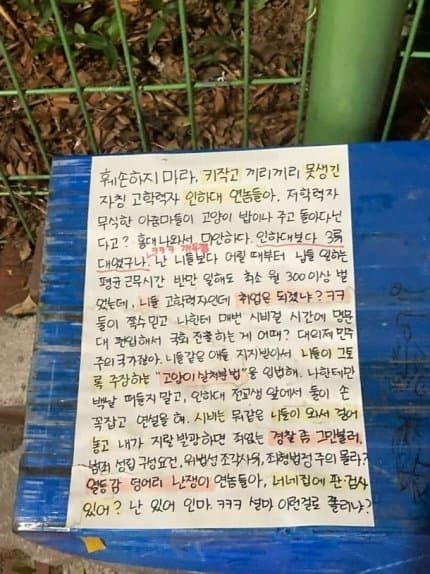 훼손하지 마라. 키작고 끼리끼리 못생긴
자칭 고학력자 인하대 연놈들아. 저학력자
무식한 아줌마들이 고양이 밥이나 주고 돌아다닌
다고? 홍대 나와서 미안하다. 인하대보다 3류
대였구나. ㅋㅋㅋ 개웃김 난 니들보다 어릴 때부터 남들 일하는
평균 근무시간 반만 일해도 최소 월 300이상 벌
었는데, 니들 고학력자인데 취업은 되겠냐? ㅋㅋ
둘이 쪽수 믿고 나한테 매번 시비걸 시간에 명문
대 편입해서 국회 진출하는 게 어때? 대의제 민주
주의 국가잖아. 니들같은 애들 지지받아서 니들이 그토
록 주장하는 "고양이 살처분법"을 입법해. 나한테만
백날 떠들지 말고, 인하대 전교생 앞에서 둘이 손
꼭잡고 연설을 해. 시비는 뭐같은 니들이 와서 걸어
놓고 내가 지랄발광하면 좌요는 경찰 좀 그만불러.
범죄 성립 구성요건, 위법성 조각사유, 죄형법정주의 몰라?
열등감 덩어리 난쟁이 연놈들아, 너네집에 판·검사
있어? 난 있어 인마. ㅋㅋㅋ 설마 이런걸로 쫄리냐?